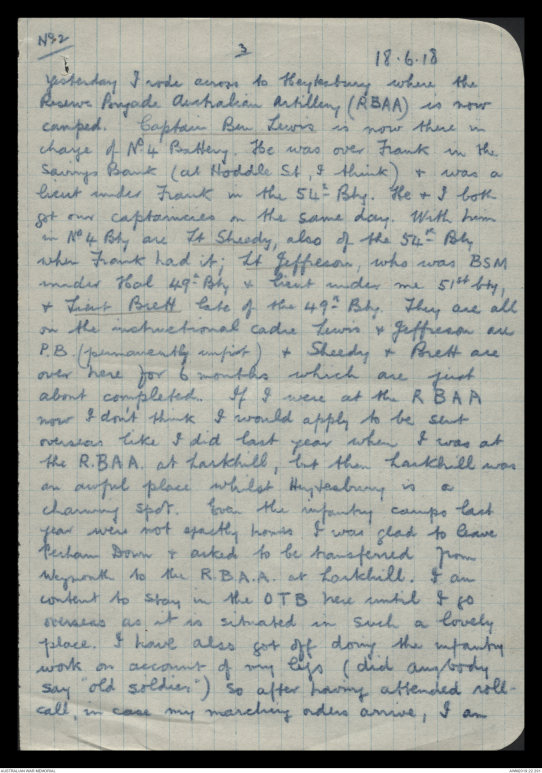 No 2
3
18.6.18
Yesterday I rode across to Heytesbury where the
Reserve Brigade Australian Artillery (RBAA) is now
camped. Captain Ben Lewis is now there in
charge of No 4 Battery. He was over Frank in the
Savings Bank (at Hoddle St, I think) & was a
lieut under Frank in the 54th Bty. He & I both
got our captaincies on the same day. With him
in No 4 Bty are Lt Sheedy, also of the 54th Bty
when Frank had it; Lt Jeffreson, who was BSM
under Hal 49th Bty & lieut under me 51st bty,
& Lieut Brett late of the 49th Bty. They are all
on the instructional cadre Lewis & Jeffreson are
P.B. (permanently unfit) & Sheedy & Brett are
over here for 6 months which are just
about completed. If I were at the RBAA
now I don't think I would apply to be sent
overseas like I did last year when I was at
the R.B.A.A. at Larkhill, but then Larkhill was
an awful place whilst Heytesbury is a
charming spot. Even the infantry camps last
year were not exactly homes I was glad to leave
Perham Down & asked to be transferred from
Weymouth to the R.B.A.A. at Larkhill. I am
content to stay in the OTB here until I go
overseas as it is situated in such a lovely
place. I have also got off doing the infantry
work on account of my legs (did anybody
say "old soldier") so after having attended roll-
call, in case my marching orders arrive, I am
AUSTRALIAN WAR MEMORIAL